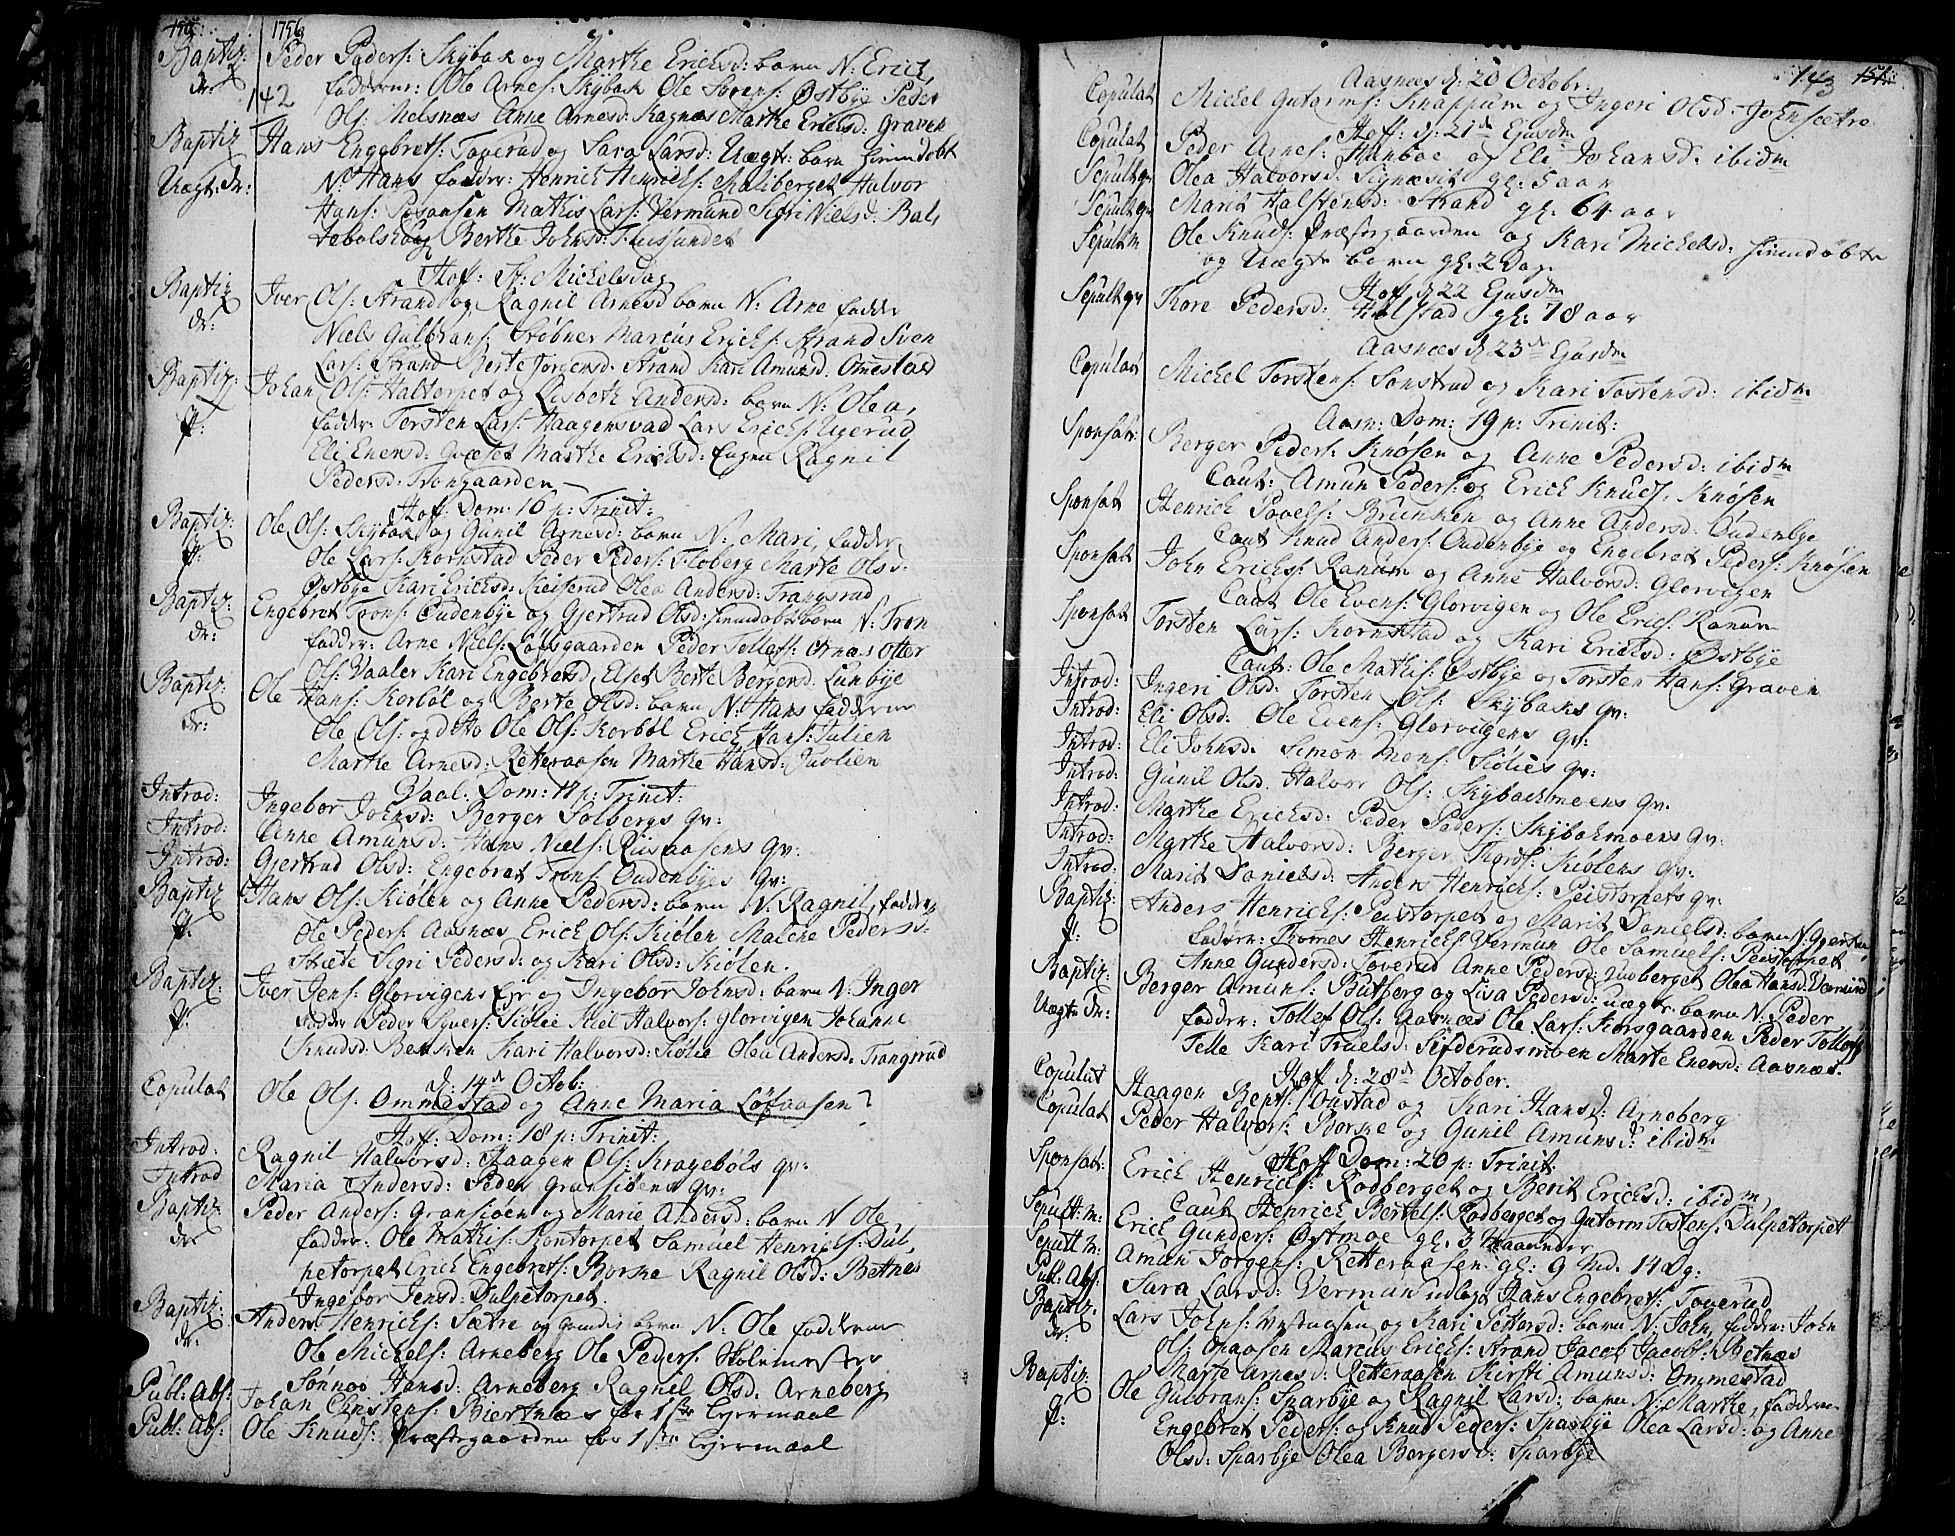 1756
142
Baptiz: Peder Peders: Skÿbak og Marthe Ericksd: barn N: Erick,
dr: faddere: Ole Arnes: Skÿbak Ole Sörens: Østbÿe Peder
Ols: Melsnæs Anne Arnesd: Kagnæs Marthe Ericksd: Graven
Baptiz Hans Engebrets: Toverud og Sara Larsd: Uægt: barn hiemdöbt
Uægt: dr: N: Hans faddr: Henrich Henrichs: Maliberget Halvor
Hans: Mathis Lars: Vermund Sigri Nielsd: Bal,
tebolshoug Berthe Johnsd: Flusundet
Hoff: St: Michelsdag
Baptiz Iver Ols: Strand og Ragnil Arnesd barn N: Arne fadde
dr: Niels Gulbrans: Støbner Marcus Erichs: Strand Sven
Lars: Strand Berte Jørgensd: Strand Kari Amundsd. Omestad
Baptiz: Johan Ols: Haltorpet og Lisbeth Andersd: barn N: Olea,
p: faddr: Torsten Lars: Haagensvad Lars Erichs: Ugerud
Eli Enersd: Græset Marthe Ericksd: Eugen Ragnil
Pedersd: Trongaarden
Hoff Dom: 16 p: Trinit:
Baptiz: Ole Ols: Skÿbak og Gunil Arnesd: barn N: Mari, faddr,
p: Ole Lars: Kornstad Peder Peders: Floberg Marte Olsd:
Østbÿe Kari Ericks: Keiserud Olea Andersd: Trangsrud
Baptiz: Engebret Trons: Oudenbÿe og Gjertrud Olsd: hiemdöbt barn N: Tron
dr: faddr: Arne Niels: Löfsgaarden Peder Tollefs: Arnæs Otter
Ols: Vaaler Kari Engebretsd: Elset Berte Bergersd. Lunbÿe
Baptiz: Ole Hans: Korböl og Berte Olsd: barn N: Hans faddere
dr: Ole Ols: og dito Ole Ols: Korböl Erick Hans: Julien
Marthe Arnesd: Retteraasen Marthe Hansd: Juvlien
Vaal. Dom: 17 p: Trinit:
Introd: Ingebor Johnsd: Berger Solbergs qv:
Introd: Anne Amundsd: Hans Niels: Riisaasens qv:
Introd: Gjertrud Olsd: Engebret Trons: Oudenbÿes qv:
Baptiz Hans Ols: Kiölen og Anne Pedersd: barn N: Ragnil, fadder,
p: Ole Peders: Aasnæs Erick Ols: Kiölen Malene Pedersd:
Sæte Sigri Pedersd: og Kari Olsd: Kiölen
Baptiz: Iver Jens: Glorvigens Eie og Ingebor Johnsd: barn N: Inger
p: faddr Peder Sÿvers: Siölie Kiel Halvors: Glorvigen Johanne
Knudsd: Benken Kari Halvorsd: Siölie Olea Andersd. Trangsrud
d: 14de Octob:
Copulat Ole Ols. Ommestad og Anne Maria Löfaasen?
Hoff: Dom: 18 p: Trinit:
Introd: Ragnil Halvorsd: Haagen Ols: Kragebóls qv:
Introd Maria Andersd: Peder Gransiöens qv:
Baptiz: Peder Anders: Gransiöen og Marie Andersd: barn N Ole
dr faddr: Ole Mathis: Kontorpet Samuel Henrichs: Dul,
petorpet Erick Engebrets: Borske Ragnil Olsd: Betnes
Ingebor Jensd: Dulpetorpet
Baptiz: Anders Henrichs: Sætre og barn N: Ole faddere
dr: Ole Michels: Arneberg Ole Peders: Skolemester
Sönnou Hansd: Arneberg Ragnil Olsd. Arneberg
Publ: Abs: Johan Christens: Biertnæs for 1ste Leiermaal
Publ: Abs: Ole Knuds: Præstegaarden for 1ste Leiermaal
143
Aasnæs d: 20 Octobr:
Copulat Michel Gutorms: Knappum og Ingeri Olsd: Johnsætre
Hof: d: 21de Ejusdm
Copulat Peder Arnes: Hanboe og Eli Johansd. ibidm
Sepult qv Olea Halvorsd: Signæsit gl: 5 aar
Sepult qv Marit Halstensd: Strand gl. 64 aar
Sepult m Ole Knuds: Præstegaarden og Kari Michelsd: hiemdöbte
og Uægte barn gl: 2 Dage
Hof d 22 Ejusdm
Sepult qv Thore Pedersd: Hulstad gl: 78 aar
Aasnæs d 23de Ejusdm
Copulat Michel Torstens: Sonstrud og Kari Tostensd: ibidm
Aasn: Dom: 19 p: Trinit:
Sponsat: Berger Peders: Knósen og Anne Pedersd: ibidm
Caut: Amun Peders: og Erick Knuds: Knösen
Sponsat Henrich Povels: Brunken og Anne Andersd: Oudenbye
Caut Knud Anders: Oudenbÿe og Engebret Peders: Knösen
Sponsat John Ericks: Ranum og Anne Halvorsd: Glorvigen
Caut Ole Evens: Glorvigen og Ole Erics: Ranum
Sponsat Torsten Lars: Kornstad og Kari Ericksd: Østbÿe
Caut: Ole Mathis: Østbÿe og Torsten Hans: Graven
Introd: Ingeri Olsd. Torsten Ols: Skÿbaks qv:
Introd: Eli Olsd: Ole Evens: Glorvigens qv:
Introd: Eli Johnsd. Simon Mons: Siölies qv:
Introd: Gunil Olsd. Halvor Ols: Skÿbachmoens qv.
Introd: Marthe Ericksd: Peder Peders: Skÿbakmoens qv:
Introd: Marthe Halvorsd: Berger Thords: Kiölens qv:
Introd: Marit Danielsd: Anders Henrichs: Peistorpets qv:
Baptiz: Anders Henrichs: Peistorpet og Marit Danielsd: barn N: Gjertru,
p: faddr: Thomes Henrichs: Vermun Ole Samuels: Peistorpet
Anne Gundersd: Toverud Anne Pedersd: Hvoberget Olea Hansd: Vermund
Baptiz: Berger Amuns: Butberg og Lisa Pedersd: uægte barn N: Peder
Uægt: dr: faddr: Tollef Ols: Aasnæs Ole Lars: Korsgaarden Peder Tollefs
Telle Kari Truelsd: Sifderudsmoen Marte Enersd: Aasnæs.
Hof d: 28de October.
Copulat Haagen Bents: Oustad og Kari Hansd: Arneberg
Copulat Peder Halvors: Borske og Gunil Amunsd: ibidm
Hoff Dom: 20 p: Trinit.
Sponsat: Erick Henrichs: Rodberget og Berit Ericksd: ibidm
Caut Henrick Bertels: Rodberget og Gutorm Tostens: Dulpetorpet
Sepult: m: Erick Gunders: Østmoe gl: 3 Maaneder
Sepult m: Amun Jorgens: Retteraasen gl: 9 Md. 14 Dg:
Publ: Abs: Sara Larsd: Vermun udlagt Hans Engebrets: Toverud
Baptiz. Lars Johns: Vestaasen og Kari Pettersd: barn N: John, faddr: John
dr: Ols: Opaasen Marcus Ericks: Strand Jacob Jacobs: Betnæs
Marte Arnesd: Retteraasen Kirsti Amunsd: Ommestad
Baptiz: Ole Gulbrans: Sparbÿe og Ragnil Larsd: barn N: Marthe, faddere
p: Engebret Peders: og Knud Peders: Sparbÿe Olea Larsd: og Anne
Olsd: Sparbÿe Olea Bergersd: Sparbÿe